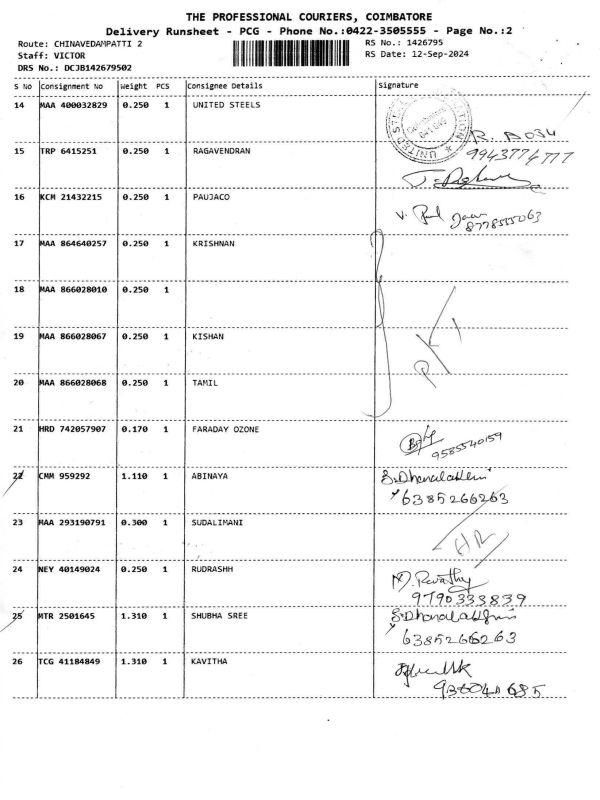 THE PROFESSIONAL COURIERS, COIMBATORE
Delivery Runsheet - PCG - Phone No.:0422-3505555 - Page No.:2
Route: CHINAVEDAMPATTI 2 RS No.: 1426795
Staff: VICTOR RS Date: 12-Sep-2024
DRS No.: DCJB142679502
S No Consignment No Weight PCS Consignee Details Signature
14 MAA 400032829 0.250 1 UNITED STEELS
R.
15 TRP 6415251 0.250 1 RAGAVENDRAN 9943774777
16 KCM 21432215 0.250 1 PAUJACO V. Paul
8778555063
17 MAA 864640257 0.250 1 KRISHNAN
18 MAA 866028010 0.250 1
19 MAA 866028067 0.250 1 KISHAN
20 MAA 866028068 0.250 1 TAMIL
21 HRD 742057907 0.170 1 FARADAY OZONE
9585540159
22 CMM 959292 1.110 1 ABINAYA
6385266263
23 MAA 293190791 0.300 1 SUDALIMANI
24 NEY 40149024 0.250 1 RUDRASHH
Revathy
9790333839
25 MTR 2501645 1.310 1 SHUBHA SREE
6385266263
26 TCG 41184849 1.310 1 KAVITHA